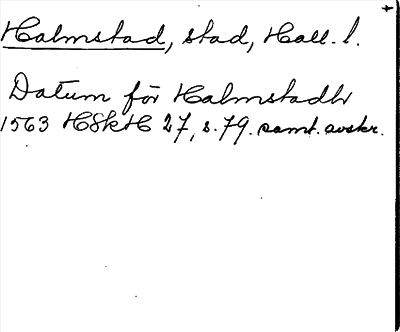 Halmstad, stad, Hall. l.
Datum för Halmstadbr
1563 HSkH 27, s. 79. samt. avskr.